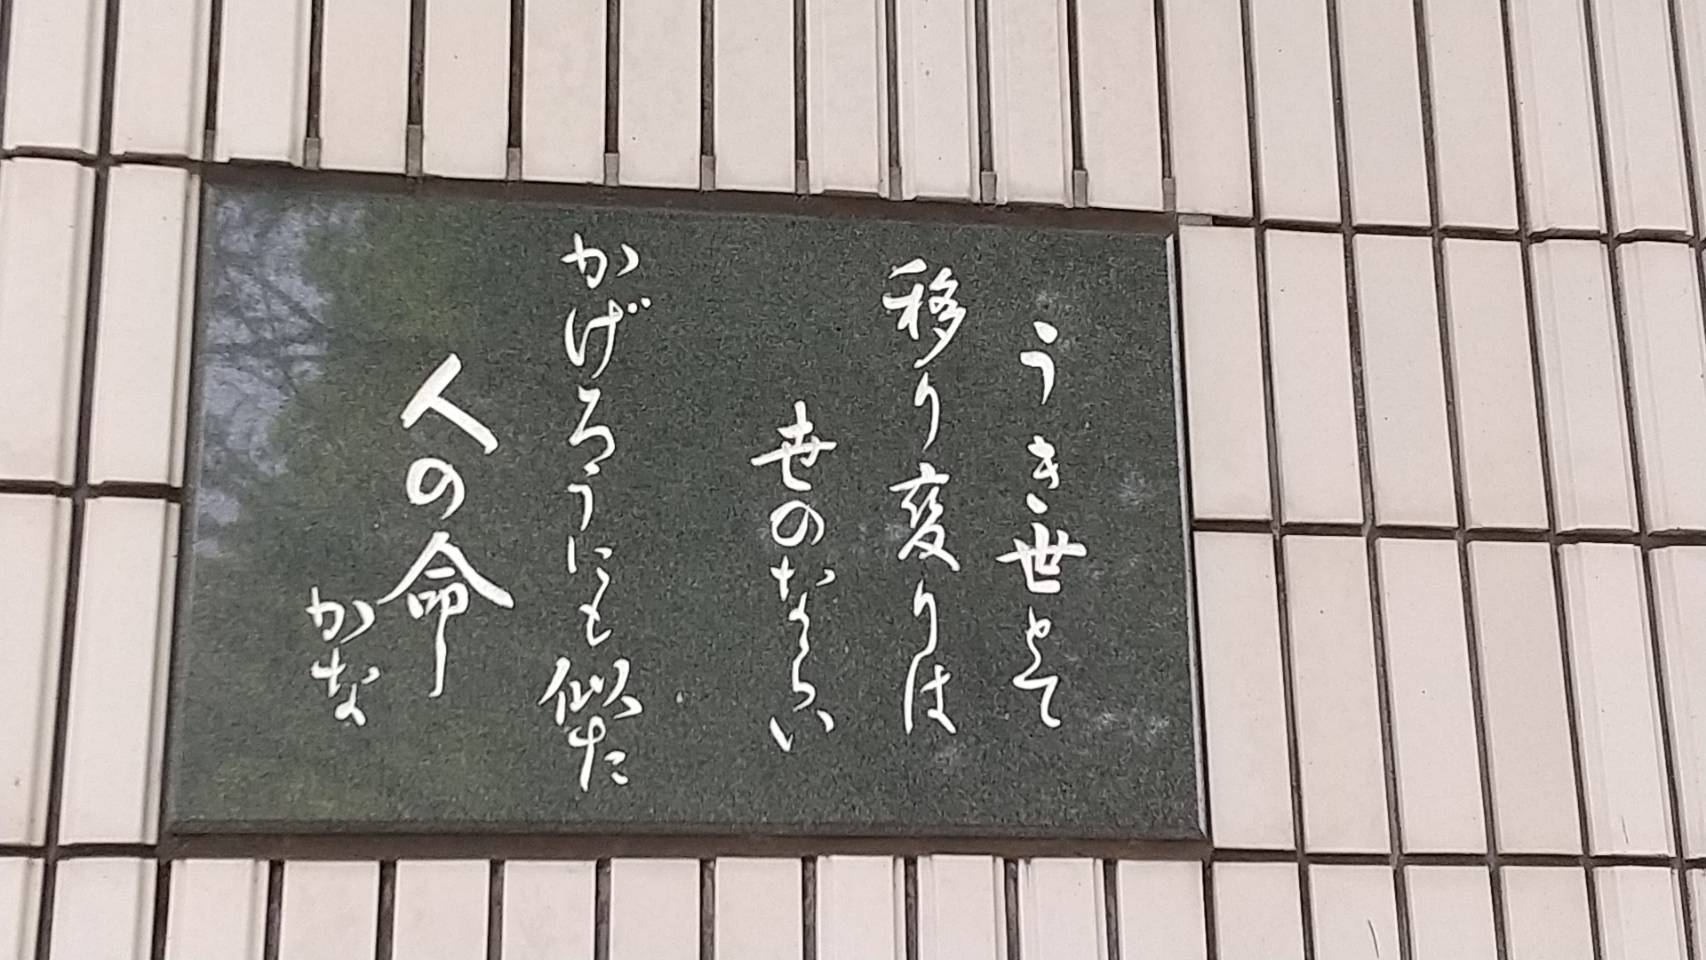 うき世とて
移り変りは
世のならい
かげろうにも似た
人の命
かな